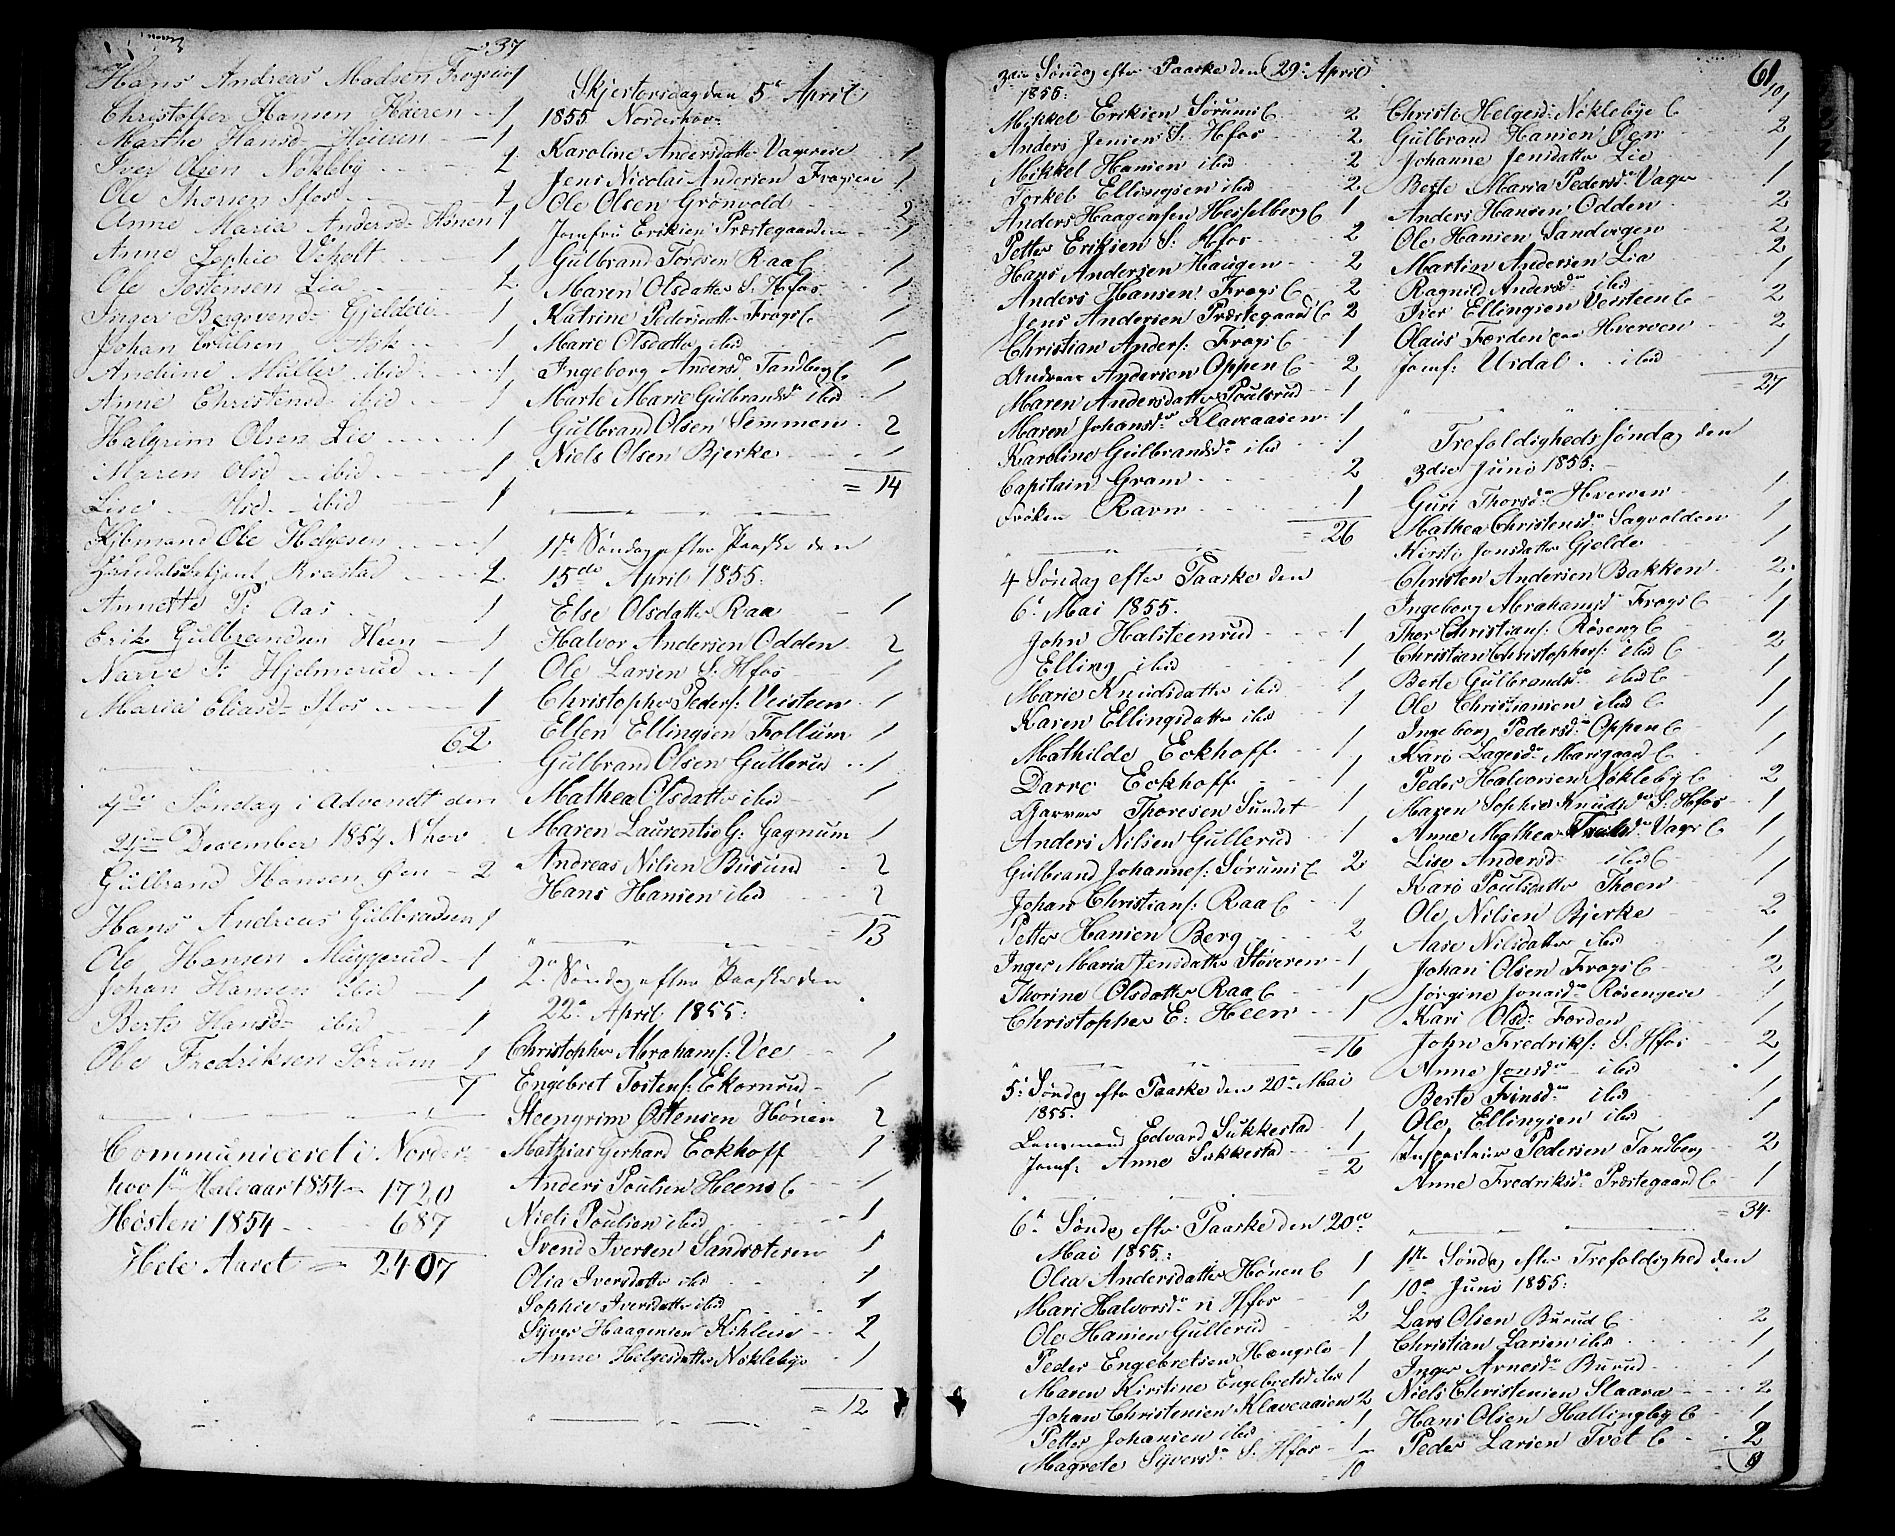 37
Hans Andreas Madsen Frogsei 1
Christoffer Hansen Haeren 1
Marthe Hansd. Heieren 1
Iver Olsen Nökleby 2
Ole Thorsen Hfos 2
Anne Maria Andersd. Hönen 1
Anne Sophie Veholt 1
Ole Tostensen Lia 2
Inger Bergsvend. Gjeldeie 1
Johan Ask 1
Andrine Müller ibid 1
Anne Christensd. ibid 1
Halgrim Olsen Lie 1
Maren Olsd ibid 1
Lise Olsd ibid 1
Kjbmand Ole Helgesen 1
Krastad 2
Annette P: Aas 1
Erik Gulbrandsen Heen 1
Narve P: Hjelmerud 1
Maria Eliasd. Hfos 1
62
4de Söndag i Advendt den
24de December 1854 N:hov
Gulbrand Hansen Öen 2
Hans Andreas Gulbrandsen 1
Ole Hansen Muggerud 1
Johan Hansen ibid 1
Berte Hansd ibid 1
Ole Fredriksen Sörum 1
7
Communiceret i Norder-
hov 1ste Halvaar 1854 1720
Hösten 1854 687
Hele Aaret = 2407
Skjertorsdag den 5te April
1855 Norderhov
Karoline Andersdatter Vageveie 1
Jens Nicolai Andersen Frogseie 1
Ole Olsen Grönvold 2
Jomfru Eriksen Præstegaarden 1
Gulbrand Tordsen Raa E 1
Maren Olsdatter S: Hfos 1
Katrine Pedersdatter Frogs E 1
Marie Olsdatter ibid 1
Ingeborg Andersdr Tandberg E 1
Marte Marie Gulbrandsd ibid 1
Gulbrand Olsen Semmem 2
Niels Olsen Bjerke 1
= 14
1ste Söndag efter Paaske den
15de April 1855:
Else Olsdatter Raa 1
Halvor Andersen Odden 2
Ole Larsen S: Hfos 1
Christopher Peders: Veisteen 1
Ellen Ellingsen Follum 1
Gulbrand Olsen Gullerud 1
Mathea Olsdatter ibid 1
Maren Laurentie G: Gagnum 1
Andreas Nilsen Busund 2
Hans Hansen ibid 2
= 13
2 Söndag efter Paaske den
22de April 1855:
Christopher Abrahams: Vee 1
Engebret Tostens: Ekornrud 1
Steengrim Östensen Hönen 2
Mathias Gerhard Eckhoff 1
Anders Poulsen Heens E 1
Niels Poulsen ibid 1
Svend Iversen Sandsæteren 1
Olia Iversdatter ibid 1
Sophie Iversdatter ibid 1
Syver Haagensen Kihleie 2
Anne Helgesdatter Noklebye 1
= 12
61
3die Söndag efter Paaske den 29de April
1855:
Mikkel Eriksen Sörums E 2
Anders Jensen S: Hfos 2
Mikkel Hansen ibid 2
Torkel Ellingsen ibid 2
Anders Haagensen Hesselberg E 1
Petter Eriksen S: Hfos 2
Hans Andersen Haugen 2
Anders Hansen Frogs E 2
Jens Andersen Præstegaard E 2
Christian Anders: Frogs E 1
Andreas Andersen Oppen E 2
Maren Andersdatter Poulsrud 1
Maren Johansdr Klaveaaien 1
Karoline Gulbrandsdr ibid 1
Capitain Gram 2
Fröken Ravn 1
= 26
4 Söndag efter Paaske den
6te Mai 1855.
John Halsteenrud 1
Elling ibid 1
Marie Knudsdatter ibid 1
Karen Ellingsdatter ibid 1
Mathilde Eckhoff 1
Darre Eckhoff 1
Garver Thoresen Sundet 1
Anders Nilsen Gullerud 1
Gulbrand Johannes: Sörums E 2
Johan Christians: Raa E 1
Petter Hansen Berg 2
Inger Maria Jensdatter Støveren 1
Thorine Olsdatter Raa E 1
Christopher E: Heen 1
= 16
5te Söndag efter Paaske den 20de Mai
1855.
Lensmand Edvard Sukkestad 1
Jomf: Anne Sukkestad 1
= 2
6te Söndag efter Paaske den 20de
Mai 1855:
Olia Andersdatter Hönen E 1
Mari Halvorsdr n Hfos 1
Ole Hansen Gullerud 2
Peder Engebretsen Hængsle 1
Maren Kirstine Engebretsd ibid 1
Johan Christensen Klaveaaien 2
Petter Johansen ibid 1
Magrete Syversdr S: Hfos 1
= 10
Christi Helgesdr Noklebye E 1
Gulbrand Hansen Öen 2
Johanne Jensdatter Lie 1
Berte Maria Pedersdr Vager 1
Anders Hansen Odden 2
Ole Hansen Sandvigen 2
Martin Andersen Lia 2
Ragnild Andersdr ibid 1
Iver Ellingsen Veisteen E 2
Olaus Færden paa Hverven 2
Jomf: Usdal ibid 1
= 27
Trefoldigheds söndag den
3die Juni 1855:
Guri Thorsdr Hverven 1
Mathea Christensdr Sagvolden 1
Kirsti Jonsdatter Gjelde 1
Christen Andersen Bakken 2
Ingeborg Abrahamsd Frogs E 1
Thor Christians: Röseng E 1
Christian Christophers: ibid E 2
Berte Gulbrandsdr ibid E 1
Ole Christiansen ibid E 1
Ingeborg Pedersdr Oppen E 1
Kari Lagesdr Marigaard E 1
Peder Halvorsen Nökleby E 2
Maren Sophie Knudsdr S: Hfos 1
Anne Mathea Vags E 1
Lise Andersd ibid E 1
Kari Poulsdatter Thoen 1
Ole Nilsen Bjerke 2
Aase Nilsdatter ibid 1
Johan Olsen Frogs E 2
Jörgine Jonasdr Rösengeie 1
Kari Olsd: Færden 1
John Fredriks: S. Hfos 2
Anne Jonsdr ibid 1
Berte Finsdr ibid 1
Ole Ellingsen ibid 1
Pedersen Tandberg 2
Anne Fredriksdr Præstegaard E 1
= 34
1ste Söndag efter Trefoldighed den
10de Juni 1855:
Lars Olsen Burud E 2
Christian Larsen ibid 1
Inger Arnesdr Burud 1
Niels Christensen Slaara 2
Hans Olsen Hallingby E 1
Peder Larsen Tvet E 2
9